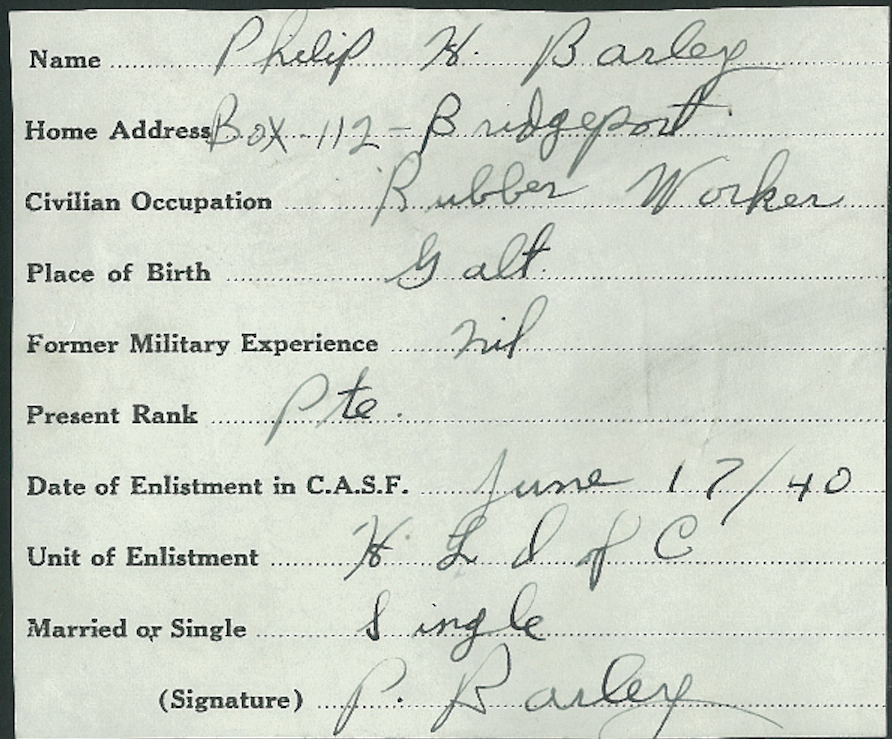 Name Philip H. Barley
Home Address Box-112-Bridgeport
Civilian Occupation Rubber Worker
Place of Birth Galt.
Former Military Experience nil
Present Rank Pte.
Date of Enlistment in C.A.S.F. June 17/40
Unit of Enlistment H L I of C
Married or Single Single
(Signature) P. Barley